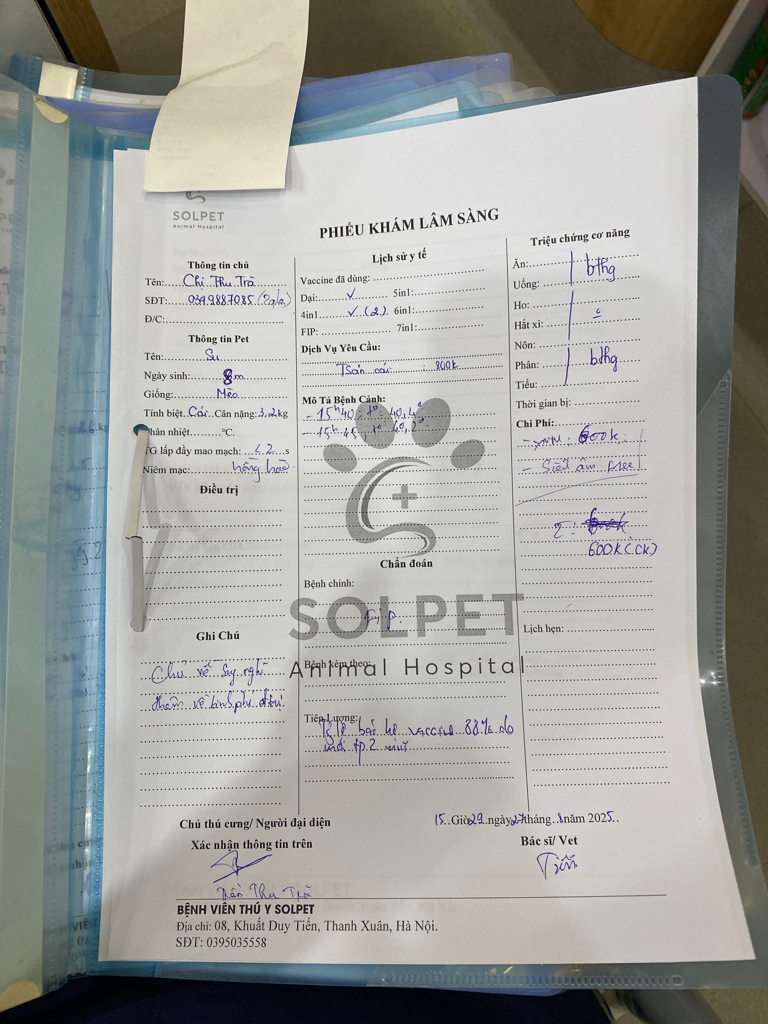 SOLPET
Animal Hospital
PHIẾU KHÁM LÂM SÀNG
Thông tin chủ
Tên: Chị Thu Trà
SĐT: 0349887085 (Zalo)
Đ/C:
Thông tin Pet
Tên: Su
Ngày sinh: 8m
Giống: Mèo
Tính biệt: Cái Cân nặng: 3,2 kg
Thân nhiệt.........°C.
TG lấp đầy mao mạch: <2 s
Niêm mạc: hồng hào
Điều trị
Ghi Chú
Chủ về suy nghĩ
thêm về kinh phí điều trị
Lịch sử y tế
Vaccine đã dùng:
Dại: ✓ 5in1:
4in1 ✓ (2) 6in1:
FIP: 7in1:
Dịch Vụ Yêu Cầu:
Tsản cái : 800k
Mô Tả Bệnh Cảnh:
- 15h40 : t° 40,4°
- 15h45 : t° 40,2°
SOLPET
Animal Hospital
Chẩn đoán
Bệnh chính:
Bệnh kèm theo:
Tiên Lượng:
Tỷ lệ bảo hộ vaccine 88% do
mới tp 2 mũi
Triệu chứng cơ năng
Ăn:
Uống: bthg
Ho:
Hắt xì:
Nôn:
Phân: bthg
Tiểu:
Thời gian bị:
Chi Phí:
- XNM : 600k
- Siêu âm Free
Σ :
600K (CK)
Lịch hẹn:
15 Giờ 29 ngày 27 tháng 8 năm 2025
Chủ thú cưng/ Người đại diện
Xác nhận thông tin trên
Trần Thu Trà
Bác sĩ/ Vet
BỆNH VIỆN THÚ Y SOLPET
Địa chỉ: 08, Khuất Duy Tiến, Thanh Xuân, Hà Nội.
SĐT: 0395035558